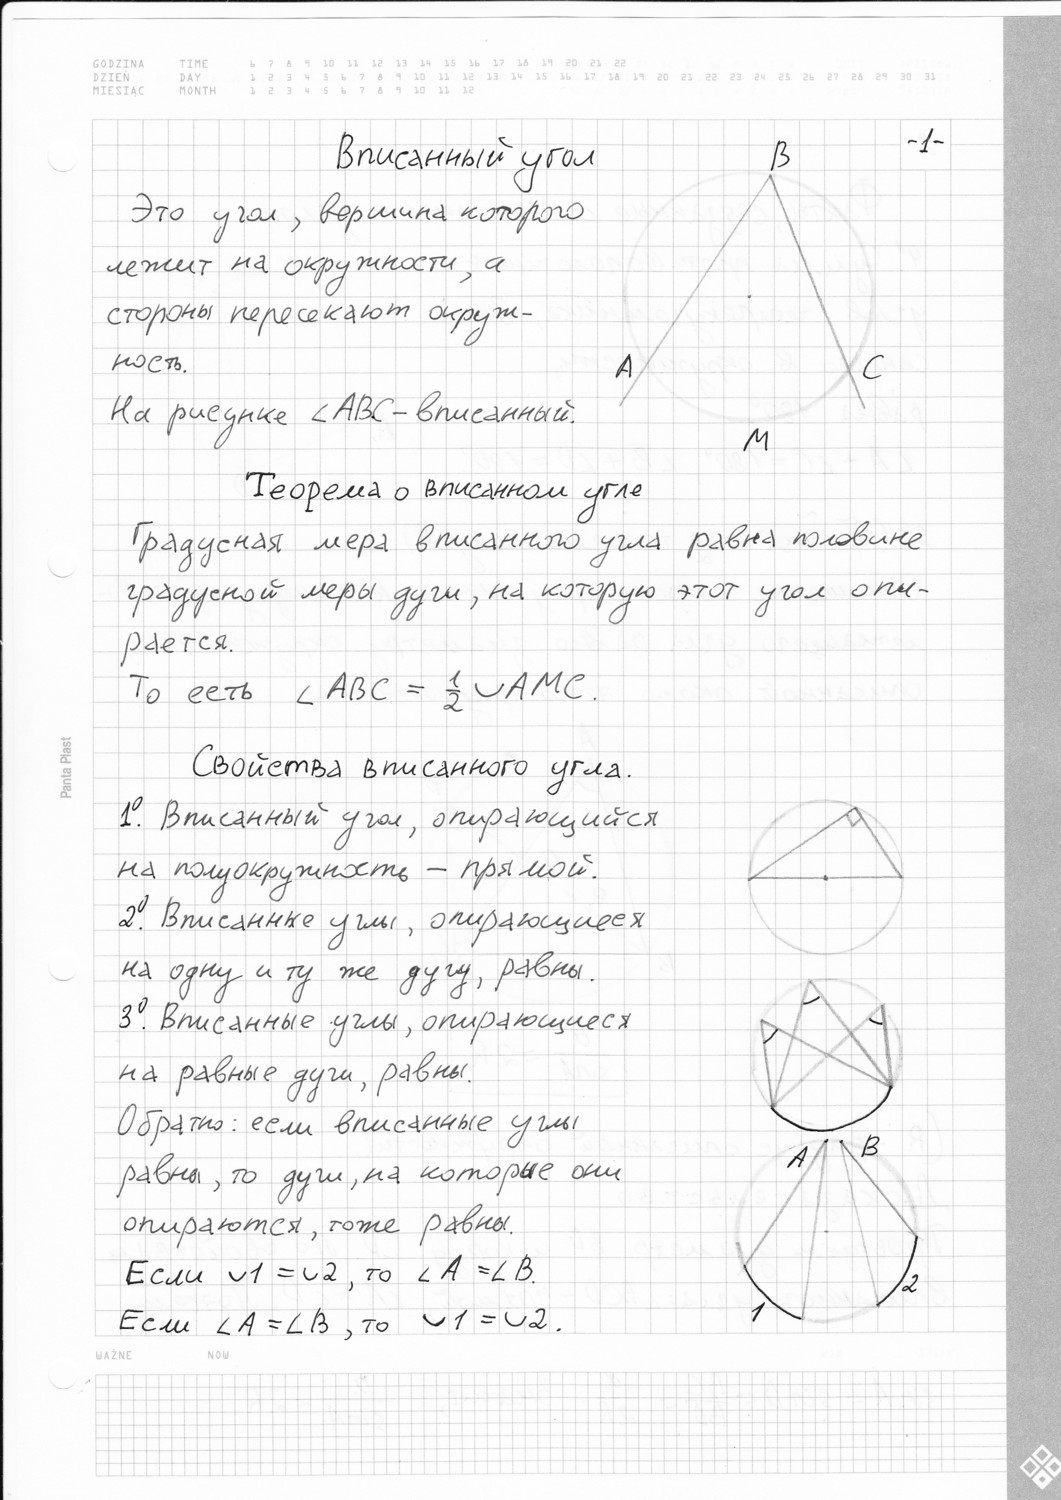 GODZINA TIME 6 7 8 9 10 11 12 13 14 15 16 17 18 19 20 21 22
DZIEŃ DAY 1 2 3 4 5 6 7 8 9 10 11 12 13 14 15 16 17 18 19 20 21 22 23 24 25 26 27 28 29 30 31
MIESIĄC MONTH 1 2 3 4 5 6 7 8 9 10 11 12
-1-
Вписанный угол
B
Это угол, вершина которого
лежит на окружности, а
стороны пересекают окруж-
ность.
A C
На рисунке ∠ABC – вписанный.
M
Теорема о вписанном угле
Градусная мера вписанного угла равна половине
градусной меры дуги, на которую этот угол опи-
рается.
То есть ∠ABC = 1/2 ◡AMC.
Panta Plast
Свойства вписанного угла.
1⁰. Вписанный угол, опирающийся
на полуокружность – прямой.
2⁰. Вписанные углы, опирающиеся
на одну и ту же дугу, равны.
3⁰. Вписанные углы, опирающиеся
на равные дуги, равны.
Обратно: если вписанные углы
A B
равны, то дуги, на которые они
опираются, тоже равны.
Если ◡1 = ◡2, то ∠A = ∠B.
1 2
Если ∠A = ∠B, то ◡1 = ◡2.
WAŻNE NOW